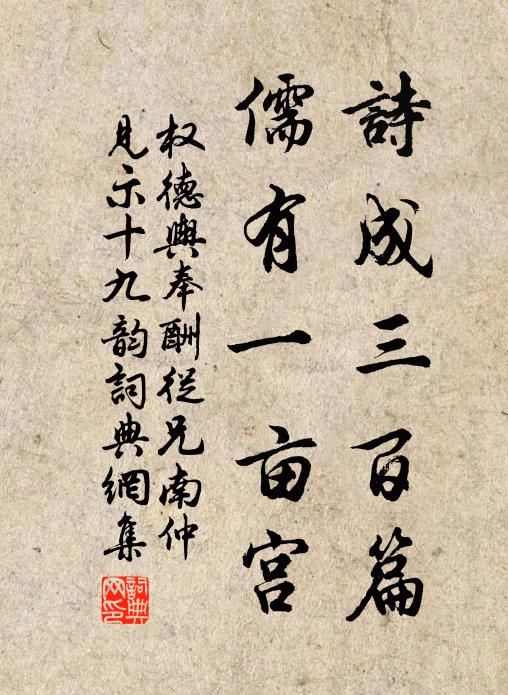 詩成三百篇
儒有一亩宫
权德舆奉酬從兄南仲
見示十九韵詞典網集
詞典網印